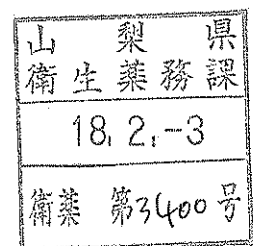 山梨県
衛生薬務課
18.2.-3
衛薬 第3400号